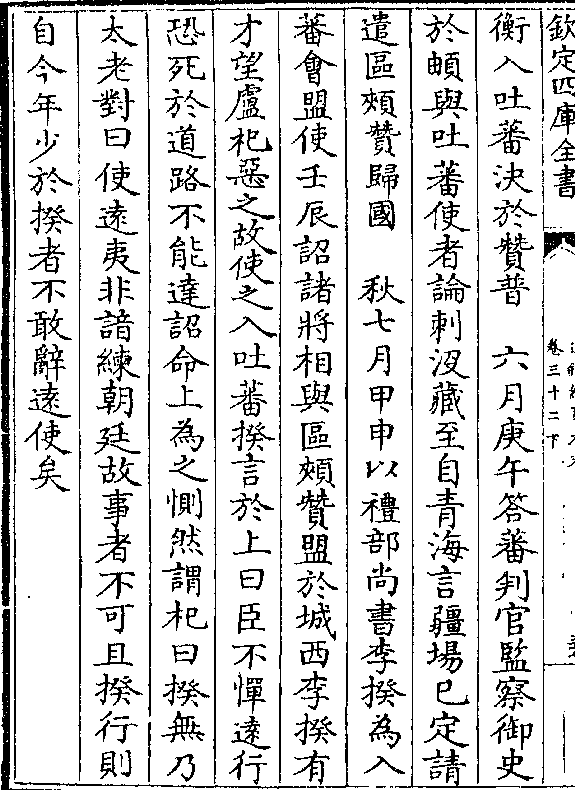 欽定四庫全書
卷三十二下
衡入吐蕃決於贊普　六月庚午答蕃判官監察御史
於頔與吐蕃使者論剌沒藏至自青海言疆場已定請
遣區頰贊歸國　秋七月甲申以禮部尚書李揆為入
蕃會盟使壬辰詔諸將相與區頰贊盟於城西李揆有
才望盧杞惡之故使之入吐蕃揆言於上曰臣不憚遠行
恐死於道路不能達詔命上為之惻然謂杞曰揆無乃
太老對曰使遠夷非諳練朝廷故事者不可且揆行則
自今年少於揆者不敢辭遠使矣